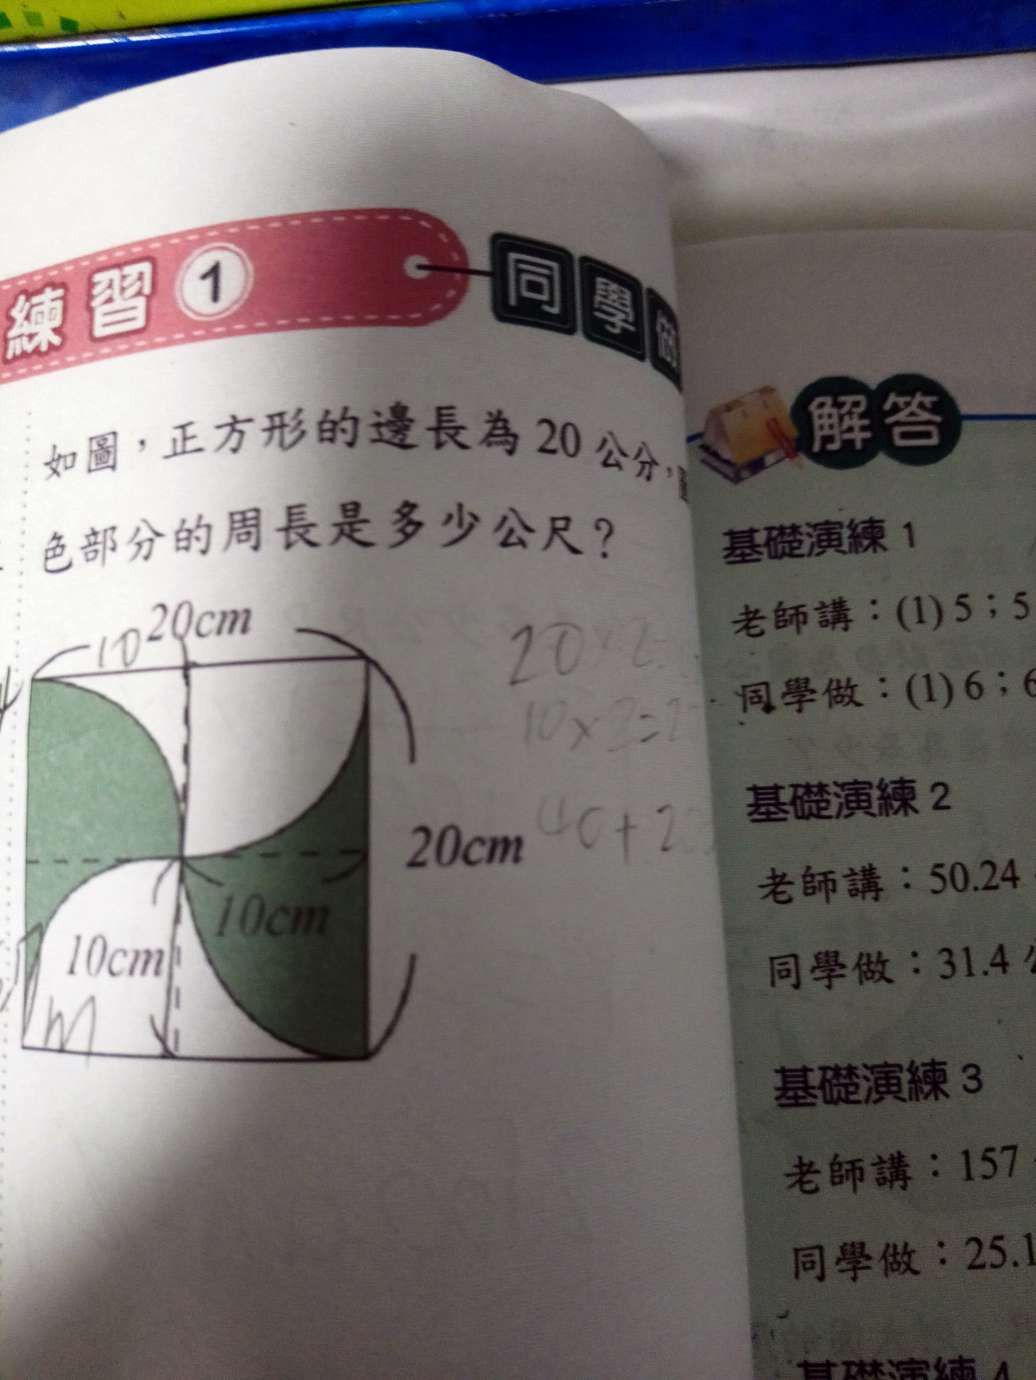 練習 1 同學做
如圖，正方形的邊長為 20 公分，
色部分的周長是多少公尺？
20cm
10
20cm
10cm
10cm
20×2=
10×2=2
40+20
解答
基礎演練 1
老師講：(1) 5；5
同學做：(1) 6；6
基礎演練 2
老師講：50.24
同學做：31.4 公
基礎演練 3
老師講：157
同學做：25.1
基礎演練 4